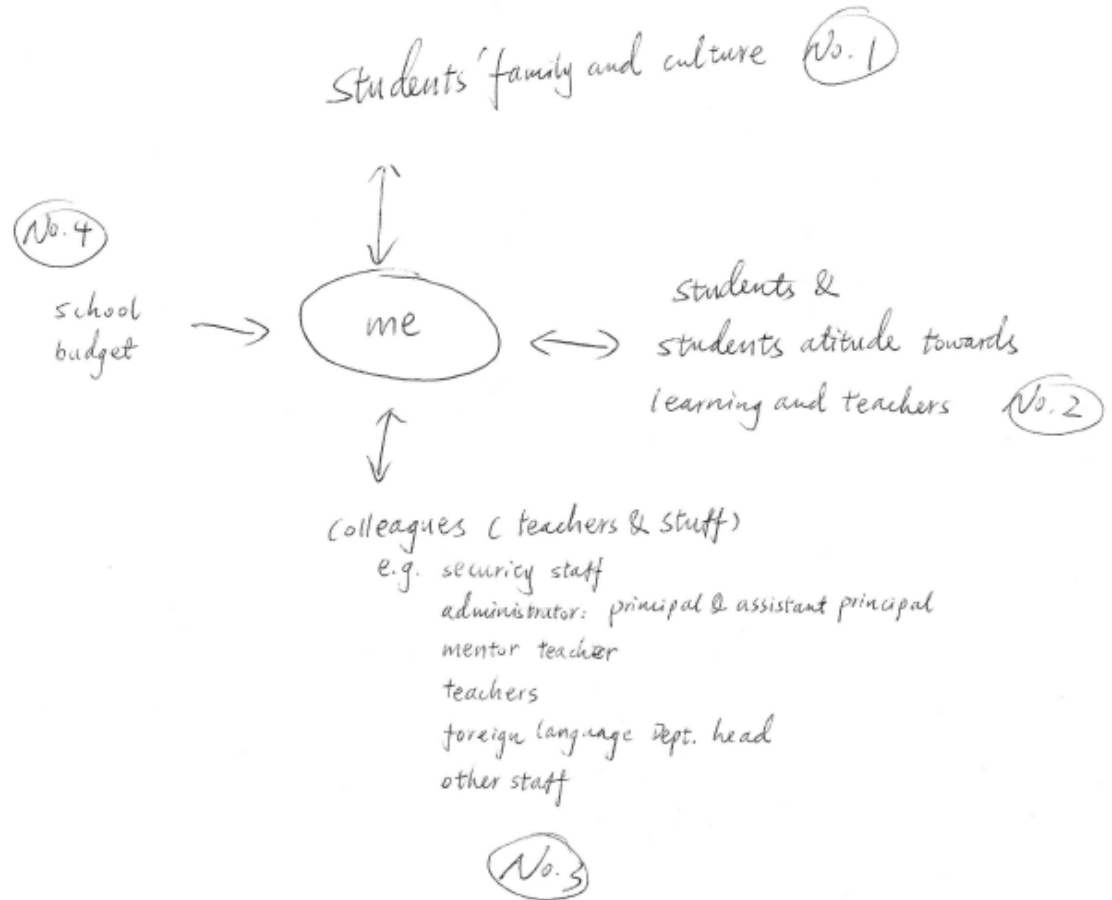 Students' family and culture No. 1
No. 4
school
budget
me
students &
students atitude towards
learning and teachers No. 2
Colleagues ( teachers & stuff)
e.g. securicy staff
administrator: principal & assistant principal
mentor teacher
teachers
foreign language Dept. head
other staff
No. 3